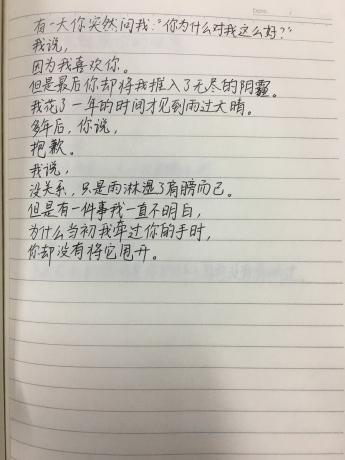 有一天你突然问我:“你为什么对我这么好?”
我说,
因为我喜欢你。
但是最后你却将我推入了无尽的阴霾。
我花了一年的时间才见到雨过天晴。
多年后,你说,
抱歉。
我说,
没关系,只是雨淋湿了肩膀而已。
但是有一件事我一直不明白,
为什么当初我牵过你的手时,
你却没有将它甩开。